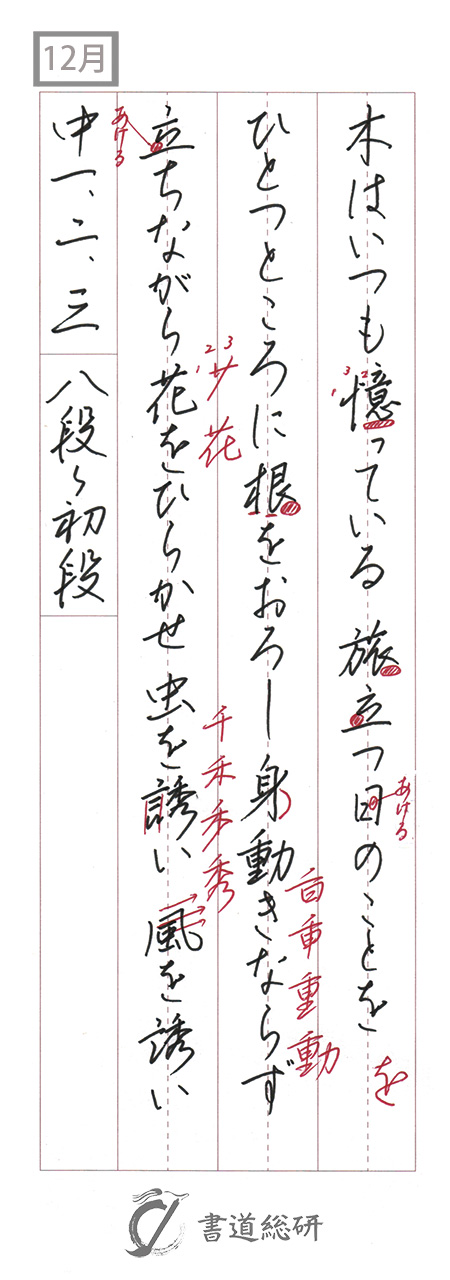 12月
木はいつも憶っている 旅立つ日のことを
ひとつところに根をおろし 身動きならず
立ちながら花をひらかせ 虫を誘い 風を誘い
中一、二、三
八段〜初段
あける
1 2 3
あける
を
1 2 3
サ 花
千 禾 秀 秀
白 重 重 動
書道総研